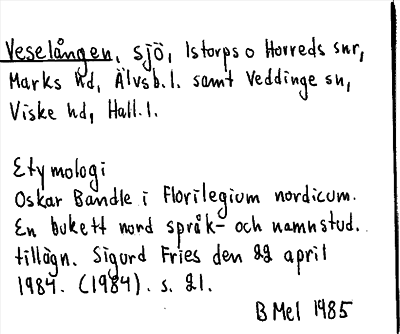 Veselången, sjö, Istorps o Horreds snr,
Marks hd, Älvsb. l. samt Veddinge sn,
Viske hd, Hall. l.
Etymologi
Oskar Bandle i Florilegium nordicum.
En bukett nord språk- och namnstud.
tillägn. Sigurd Fries den 22 april
1984. (1984). s. 21.
B Mel 1985